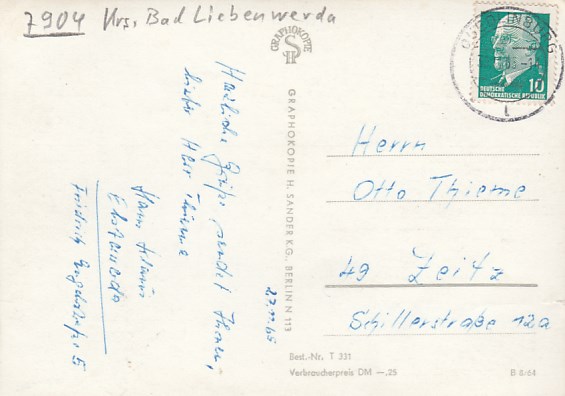 7904 Krs. Bad Liebenwerda
Herzliche Grüße sendet Ihnen,
lieber Herr Thieme
Hans
Elsterwerda
Friedrich Engelsstraße 5
27.12.65
GRAPHOKOPIE
GRAPHOKOPIE H. SANDER K.G., BERLIN N 113
10
DEUTSCHE
DEMOKRATISCHE REPUBLIK
Herrn
Otto Thieme
49 Zeitz
Schillerstraße 12a
Best.-Nr. T 331
Verbraucherpreis DM —,25
B 8/64